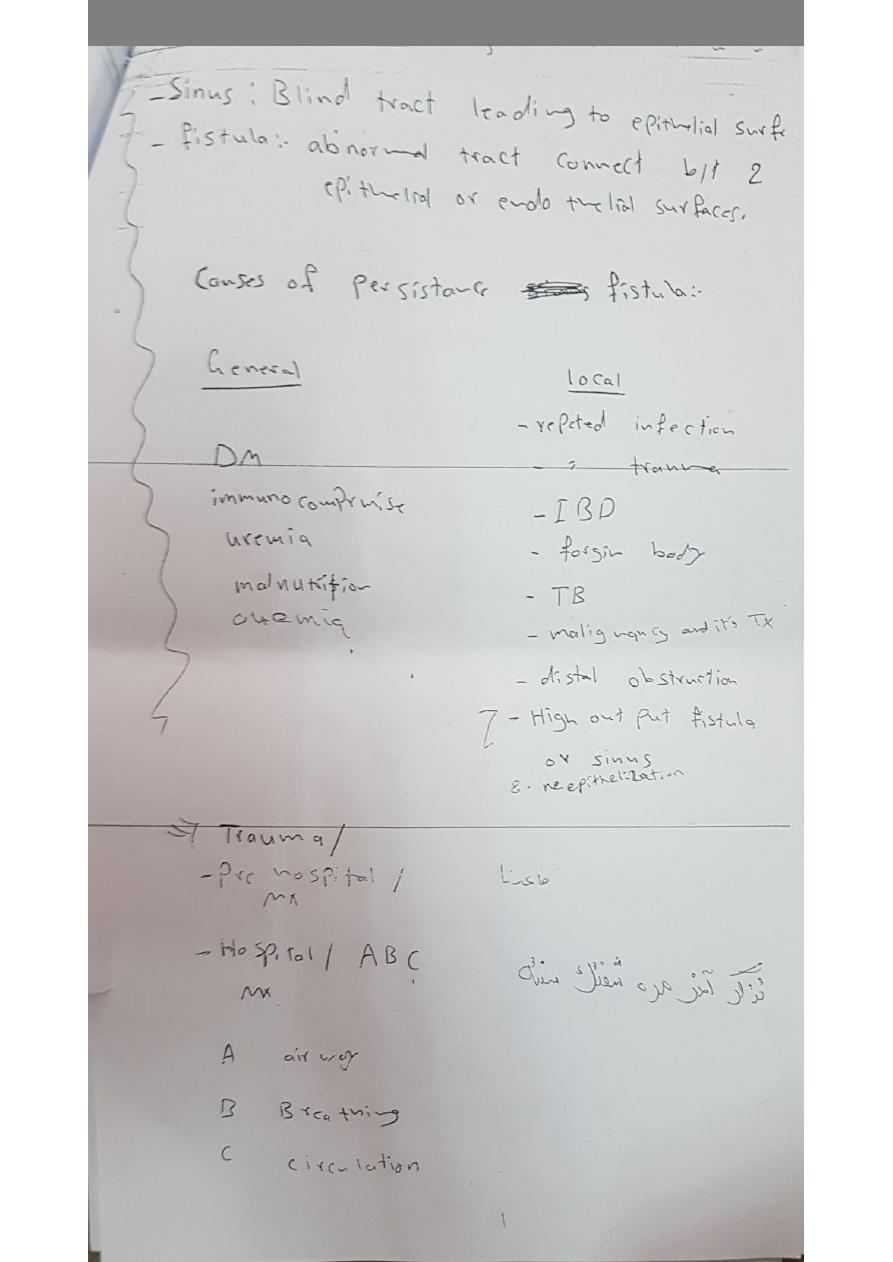 - Sinus : Blind tract leading to epithelial surf
- fistula :- abnormal tract connect b/t 2
epithelial or endothelial surfaces.
Causes of persistance fistula :-
General
DM
immunocomprmise
uremia
malnutrition
anemia
local
- repeted infection
- = trauma
- IBD
- forgin body
- TB
- malignancy and it's Tx
- distal obstruction
7 - High out put fistula
or sinus
8 - reepithelization
=> Trauma /
- Pre hospital /
Mx
- Hospital / ABC
Mx
A airway
B Breathing
C circulation
1